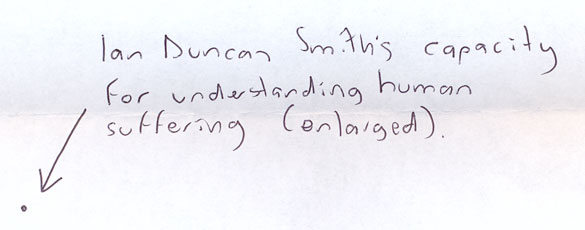 Ian Duncan Smith's capacity
for understanding human
suffering (enlarged).